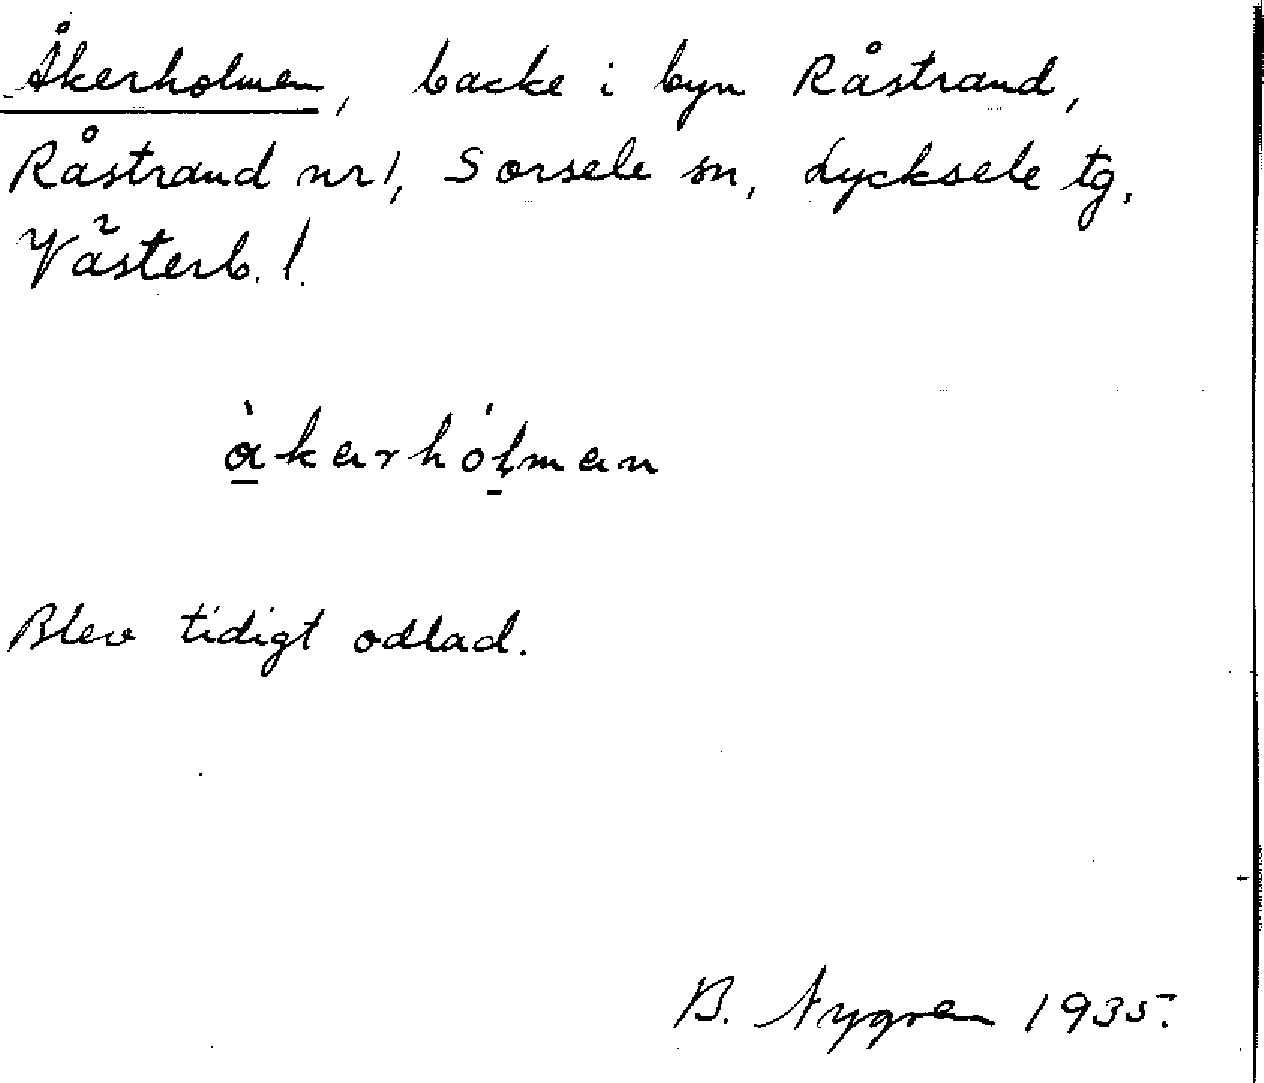 Åkerholmen, backe i byn Råstrand,
Råstrand nr 1, Sorsele sn, Lycksele tg,
Västerb. l.
åkerhólmen
Blev tidigt odlad.
B. Nygren 1935.